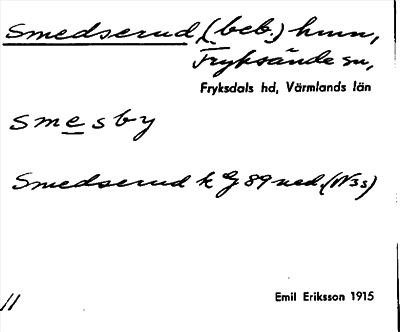 Smedserud (beb.) hmn,
Fryksände sn,
Fryksdals hd, Värmlands län
smesby
Smedserud k G 89 ned. (N3s)
11
Emil Eriksson 1915